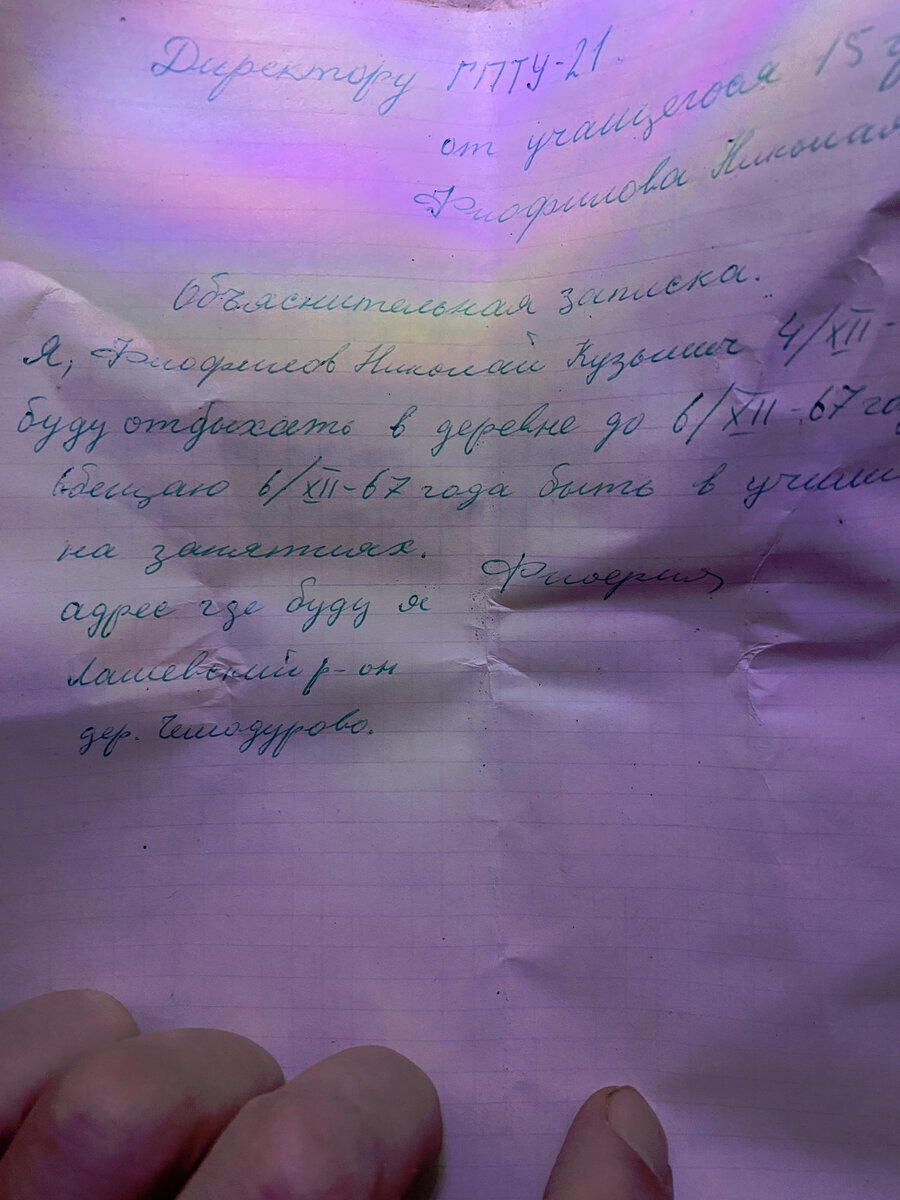 Директору ГПТУ-21.
от учащегося 15 г
Фиофилова Николая
Объяснительная записка.
Я, Фиофилов Николай Кузьмич 4/XII-
буду отдыхать в деревне до 6/XII-67 го
обещаю 6/XII-67 года быть в учили
на занятиях.
адрес где буду я
Лаишевский р-он
дер. Чемодурово.